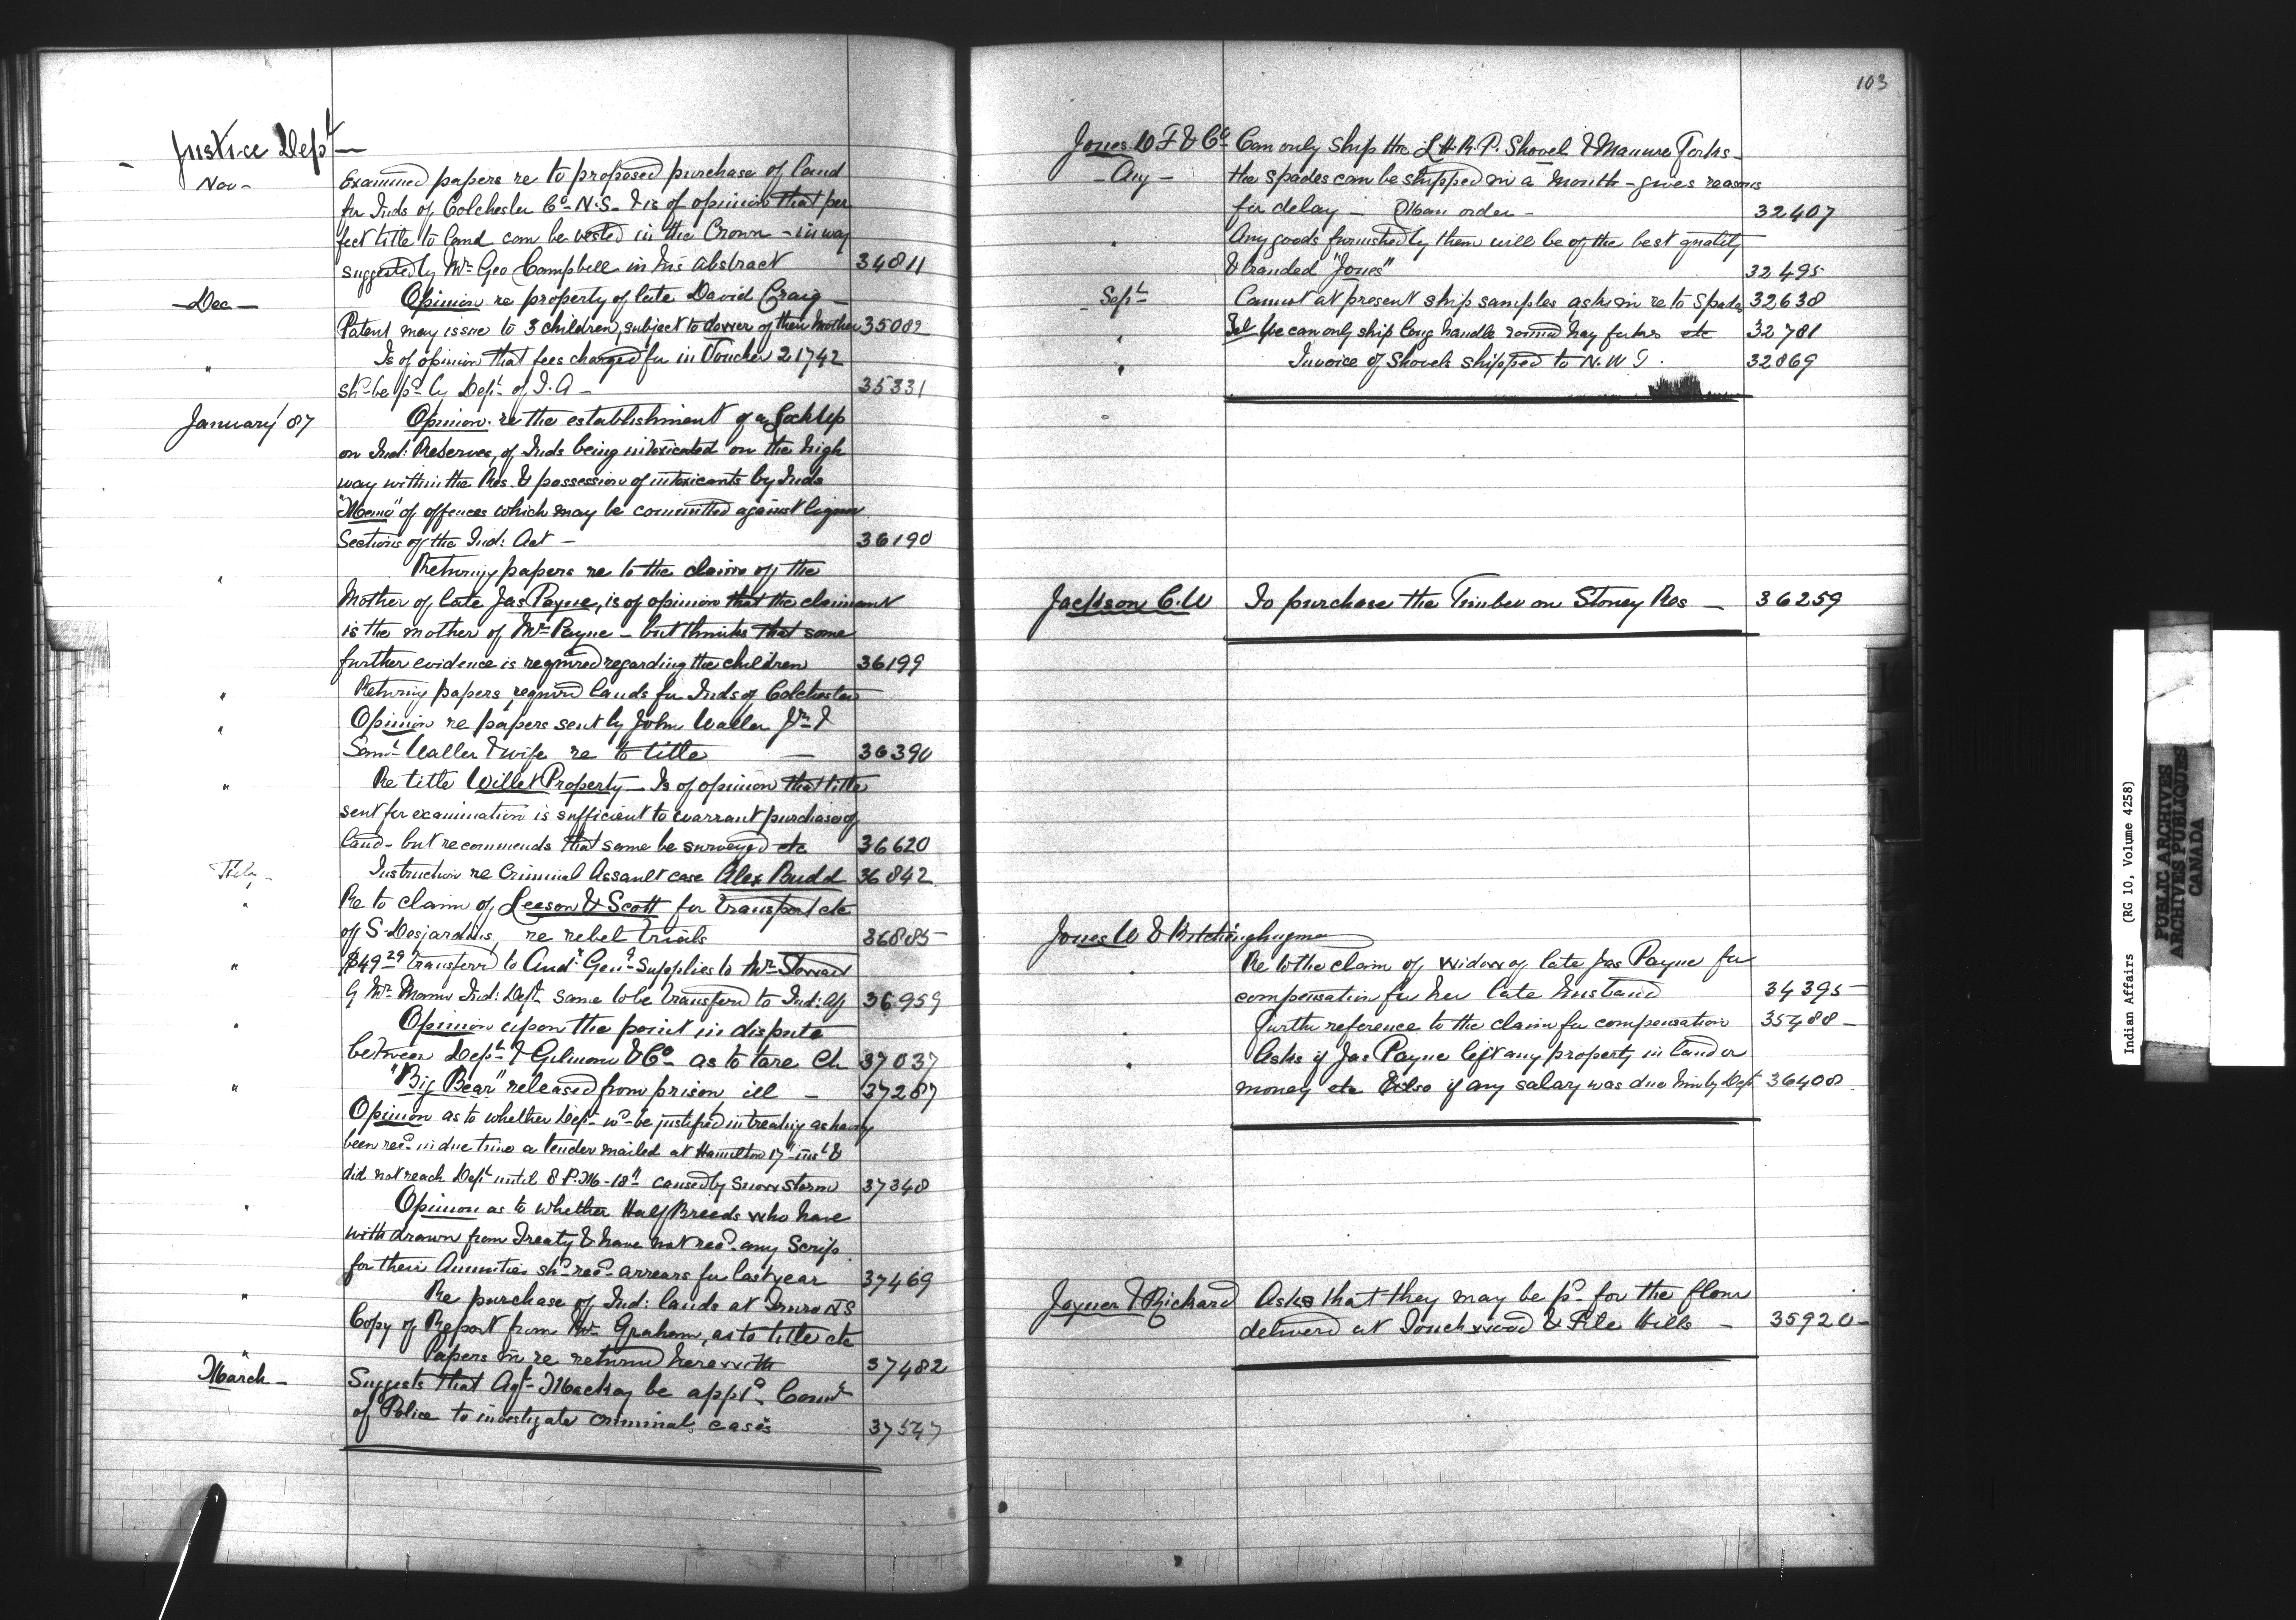 Justice Dept
Nov - Examined papers re to proposed purchase of land
for Inds of Colchester Co. N.S. & is of opinion that per
fect title to land can be vested in the Crown - in way
suggested by Mr Geo Campbell in his abstract 34811
Dec - Opinion re property of late David Craig -
Patent may issue to 3 children, subject to dower of their mother 35082
" Is of opinion that fees charged for in Voucher 21742
shd be pd by Dept of I.A - 35331
January/87 Opinion re the establishment of a Lock Up
on Ind: Reserves, of Inds being intoxicated on the high
way within the Res. & possession of intoxicants by Inds
"Memo" of offences which may be committed against liquor
Sections of the Ind: Act - 36190
" Returning papers re to the claim of the
Mother of late Jas Payne, is of opinion that the claimant
is the mother of Mr Payne - but thinks that some
further evidence is required regarding the children 36199
" Returning papers, required lands for Inds of Colchester
" Opinion re papers sent by John Waller Jr &
Saml Waller & wife re to title - 36390
" Re title Willet Property - Is of opinion that title
sent for examination is sufficient to warrant purchase of
land - but recommends that same be surveyed etc 36620
Feby - Instruction re Criminal Assault case Alex Budd 36842
" Re to claim of Leeson & Scott for transport etc
of S. Desjardins, re rebel trials 36885
" $49.29 transferd to Audr Genl Supplies to Mr
Ind: Dept same to be transferd to Ind: Aff 36959
" Opinion upon the point in dispute
between Dept & Gilmour & Co as to tare 37037
" "Big Bear" released from prison, ill - 37287
Opinion as to whether Dept wd be justified in treating as having
been recd in due time a tender mailed at Hamilton 17th inst &
did not reach Dept until 8 P.M - 18th caused by snow storm 37348
" Opinion as to whether Half Breeds who have
withdrawn from Treaty & have not recd any Scrip
for their Annuities shd recd arrears for last year 37469
" Re purchase of Ind: lands at Truro N S
Copy of Report from Mr Graham, as to title etc
" Papers in re returnd herewith 37482
March - Suggests that Agt Mackay be apptd Comr
of Police to investigate criminal cases 37547
103
Jones W F & Co Can only ship the L.H.R.P. Shovel & Manure Forks -
- Aug - the spades can be shipped in a month - gives reasons
for delay - order - 32407
" Any goods furnished by them will be of the best quality
& branded "Jones" 32495
Sept Cannot at present ship samples, asks in re to Spades 32638
" Tel We can only ship long handle round hay forks etc 32781
" Invoice of Shovels shipped to N.W.T. 32869
Jackson C.W To purchase the Timber on Stoney Res - 36259
Jones W &
" Re to the claim of widow of late Jas Payne for
compensation for her late husband 34395
" Further reference to the claim for compensation 35488 -
" Asks if Jas Payne left any property in land or
money etc Also if any salary was due him by Dept 36408
Joyner & Richard Asks that they may be pd for the flour
deliverd at Touchwood & File Hills - 35920 -
Indian Affairs (RG 10, Volume 4258)
PUBLIC ARCHIVES
ARCHIVES PUBLIQUES
CANADA